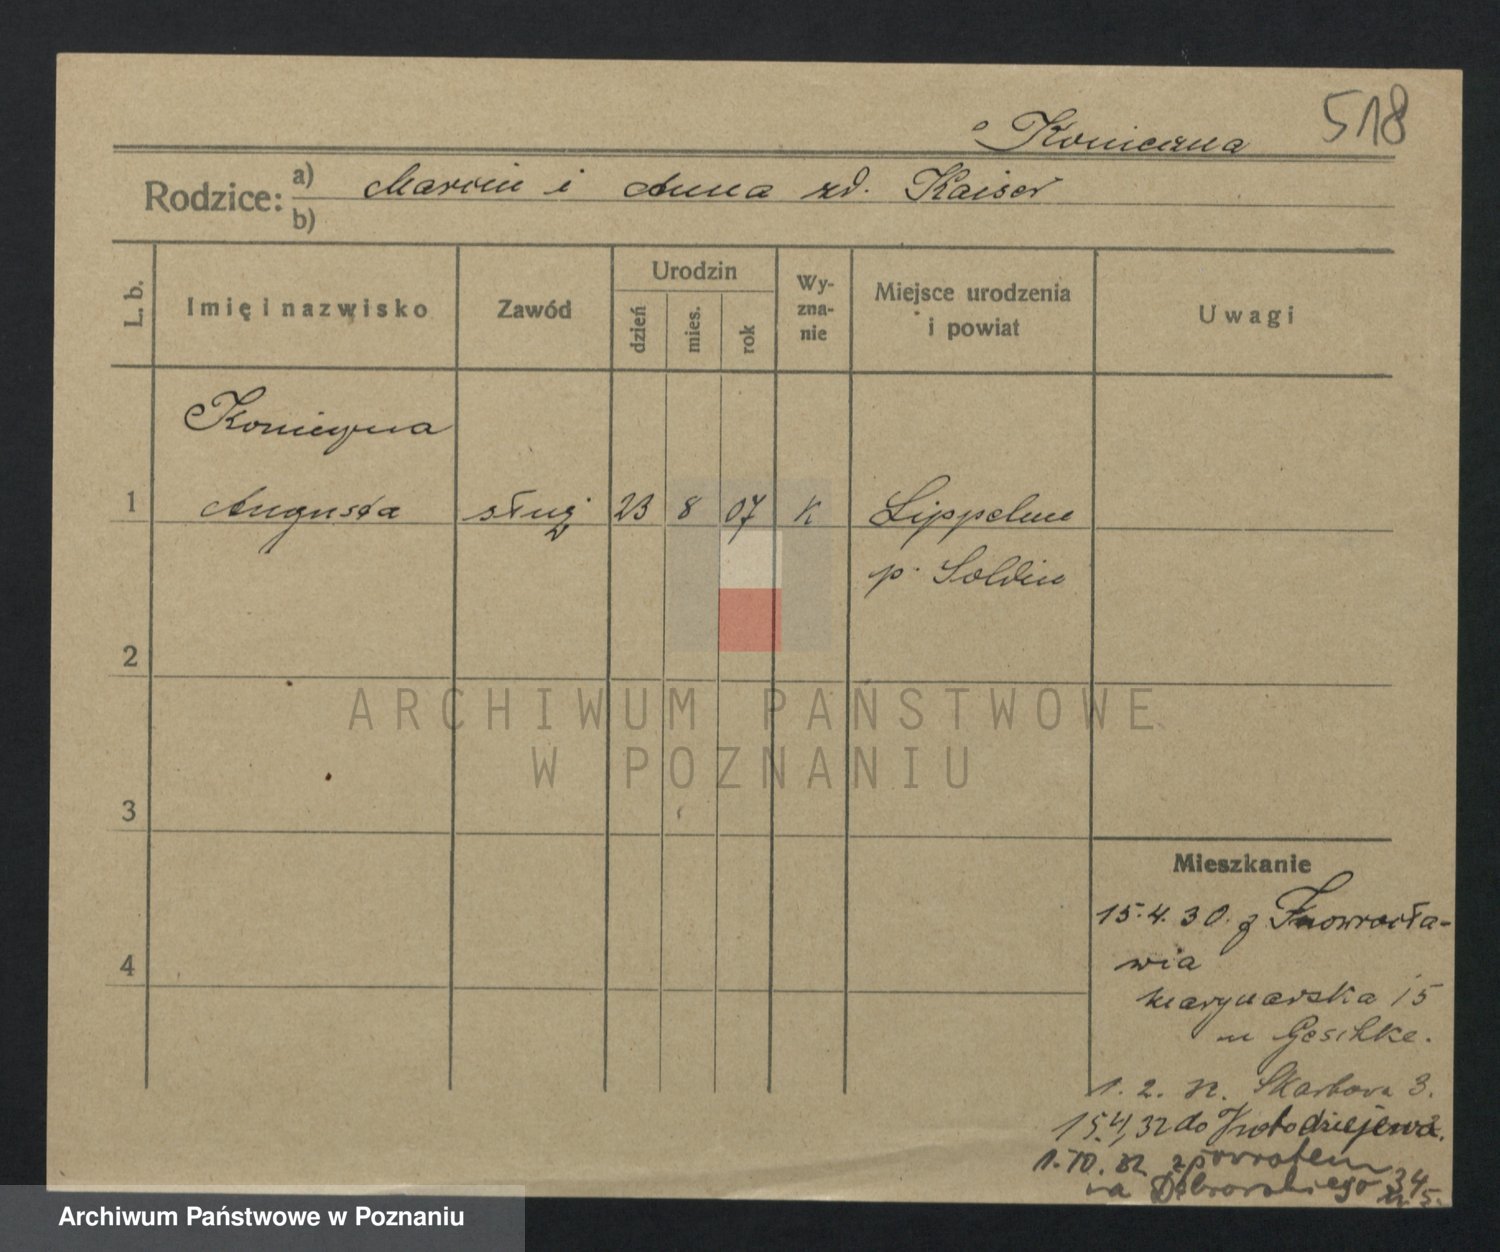 518
Konieczna
Rodzice: a) Marcin i Anna zd. Kaiser
b)
L. b.
Imię i nazwisko
Zawód
Urodzin
dzień
mies.
rok
Wy-
zna-
nie
Miejsce urodzenia
i powiat
Uwagi
Konieczna
1 Augusta służ 23 8 07 K Lippehne
p. Soldin
2
3
4
Mieszkanie
15.4.30. z Inowrocła-
wia
Marynarska 15
u Geschke.
1. 2. 32. Skarbowa 3.
15.4.32 do Kołodziejewa.
1.10.32 z powrotem
na Dąbrowskiego 34
ARCHIWUM PAŃSTWOWE
W POZNANIU
Archiwum Państwowe w Poznaniu